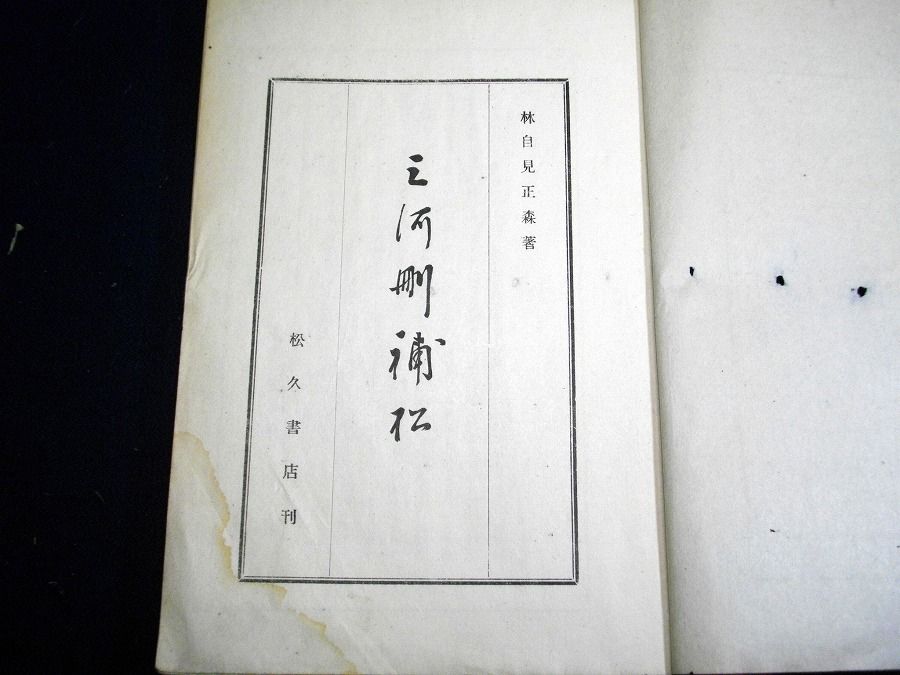 林自見正森著
三河刪補松
松久書店刊